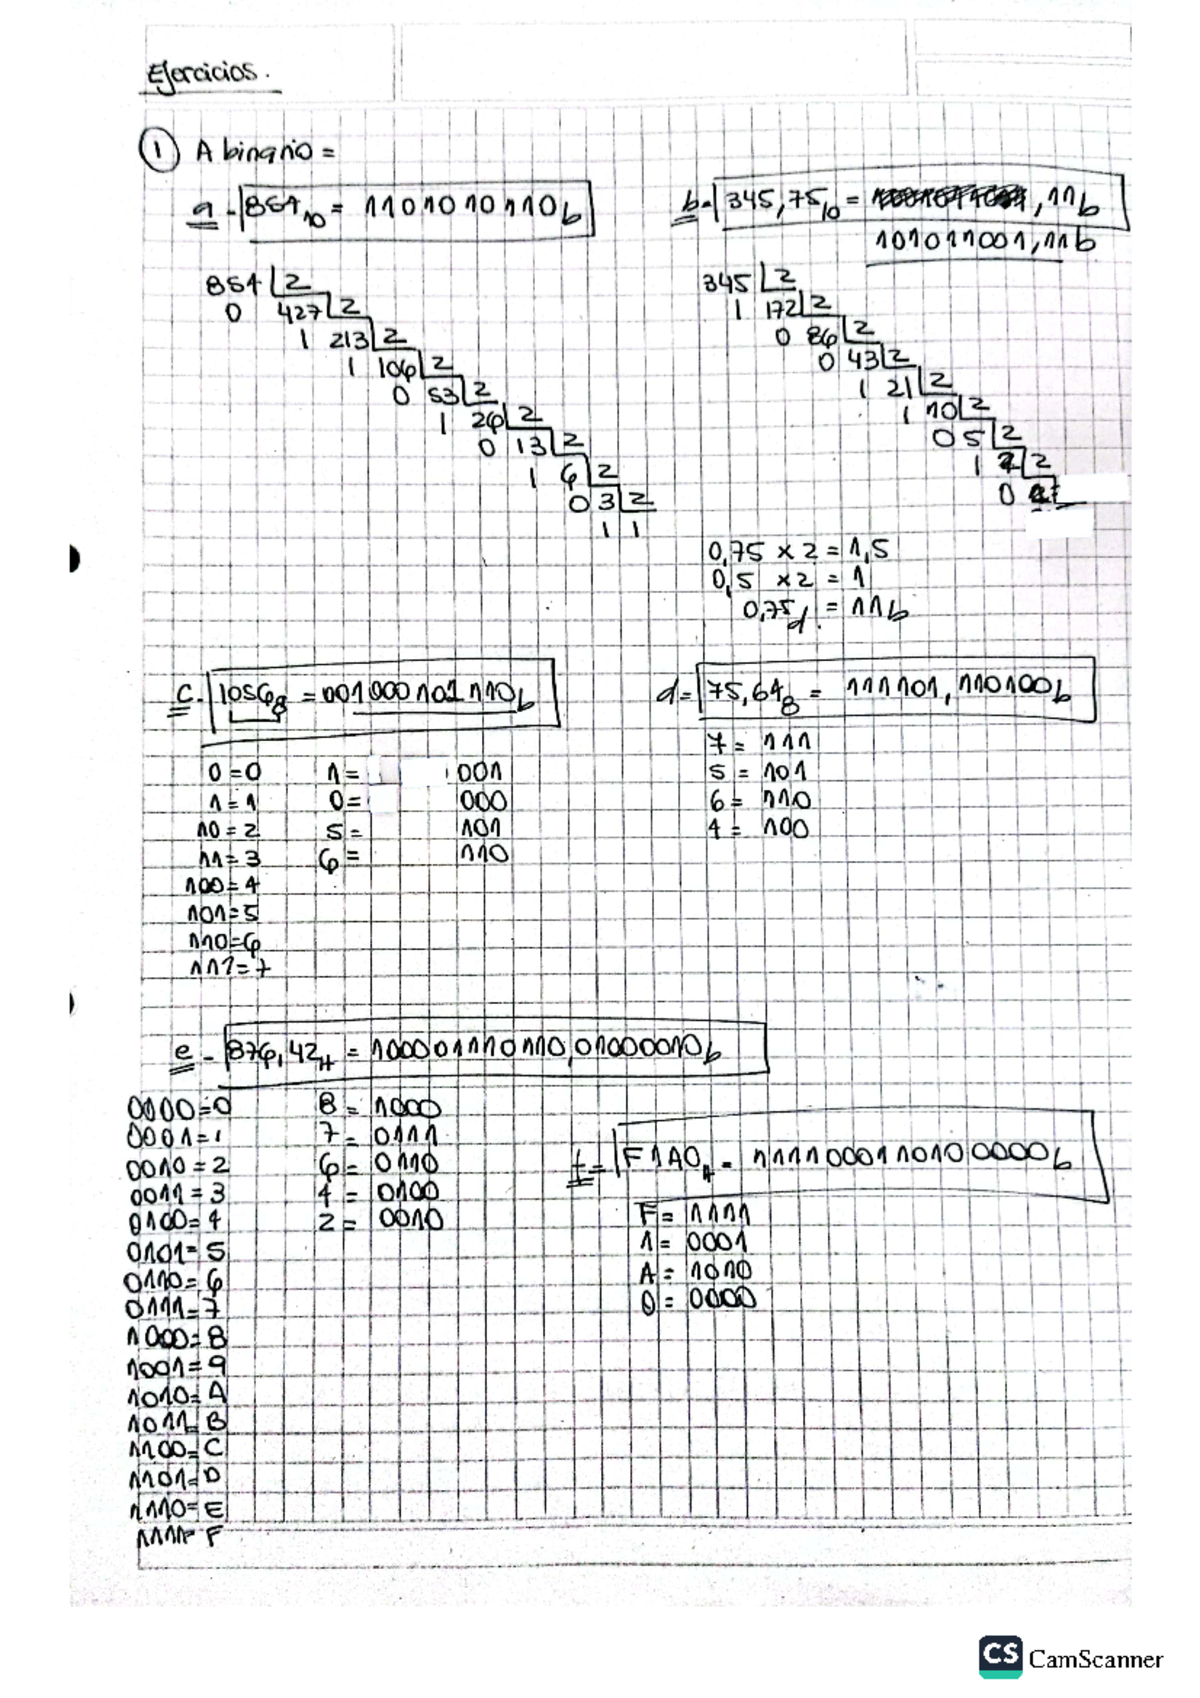 Ejercicios.
1 A binario =
a - 854₁₀ = 1101010110b
b- 345,75₁₀ = ,11b
101011001,11b
854 2
0 427 2
1 213 2
1 106 2
0 53 2
1 26 2
0 13 2
1 6 2
0 3 2
1 1
345 2
1 172 2
0 86 2
0 43 2
1 21 2
1 10 2
0 5 2
1 2 2
0
0,75 x 2 = 1,5
0,5 x 2 = 1
0,75d. = 11b
c. 1056₈ = 001000101110b
0=0
1=1
10=2
11=3
100=4
101=5
110=6
111=7
1= 001
0= 000
5= 101
6= 110
d= 75,64₈ = 111101,110100b
7= 111
5= 101
6= 110
4= 100
e - 876,42H = 100001110110,01000010b
0000=0
0001=1
0010=2
0011=3
0100=4
0101=5
0110=6
0111=7
1000=8
1001=9
1010=A
1011=B
1100=C
1101=D
1110=E
1111= F
8= 1000
7= 0111
6= 0110
4= 0100
2= 0010
f= F1A0H = 1111000110100000b
F= 1111
1= 0001
A= 1010
0= 0000
CS CamScanner